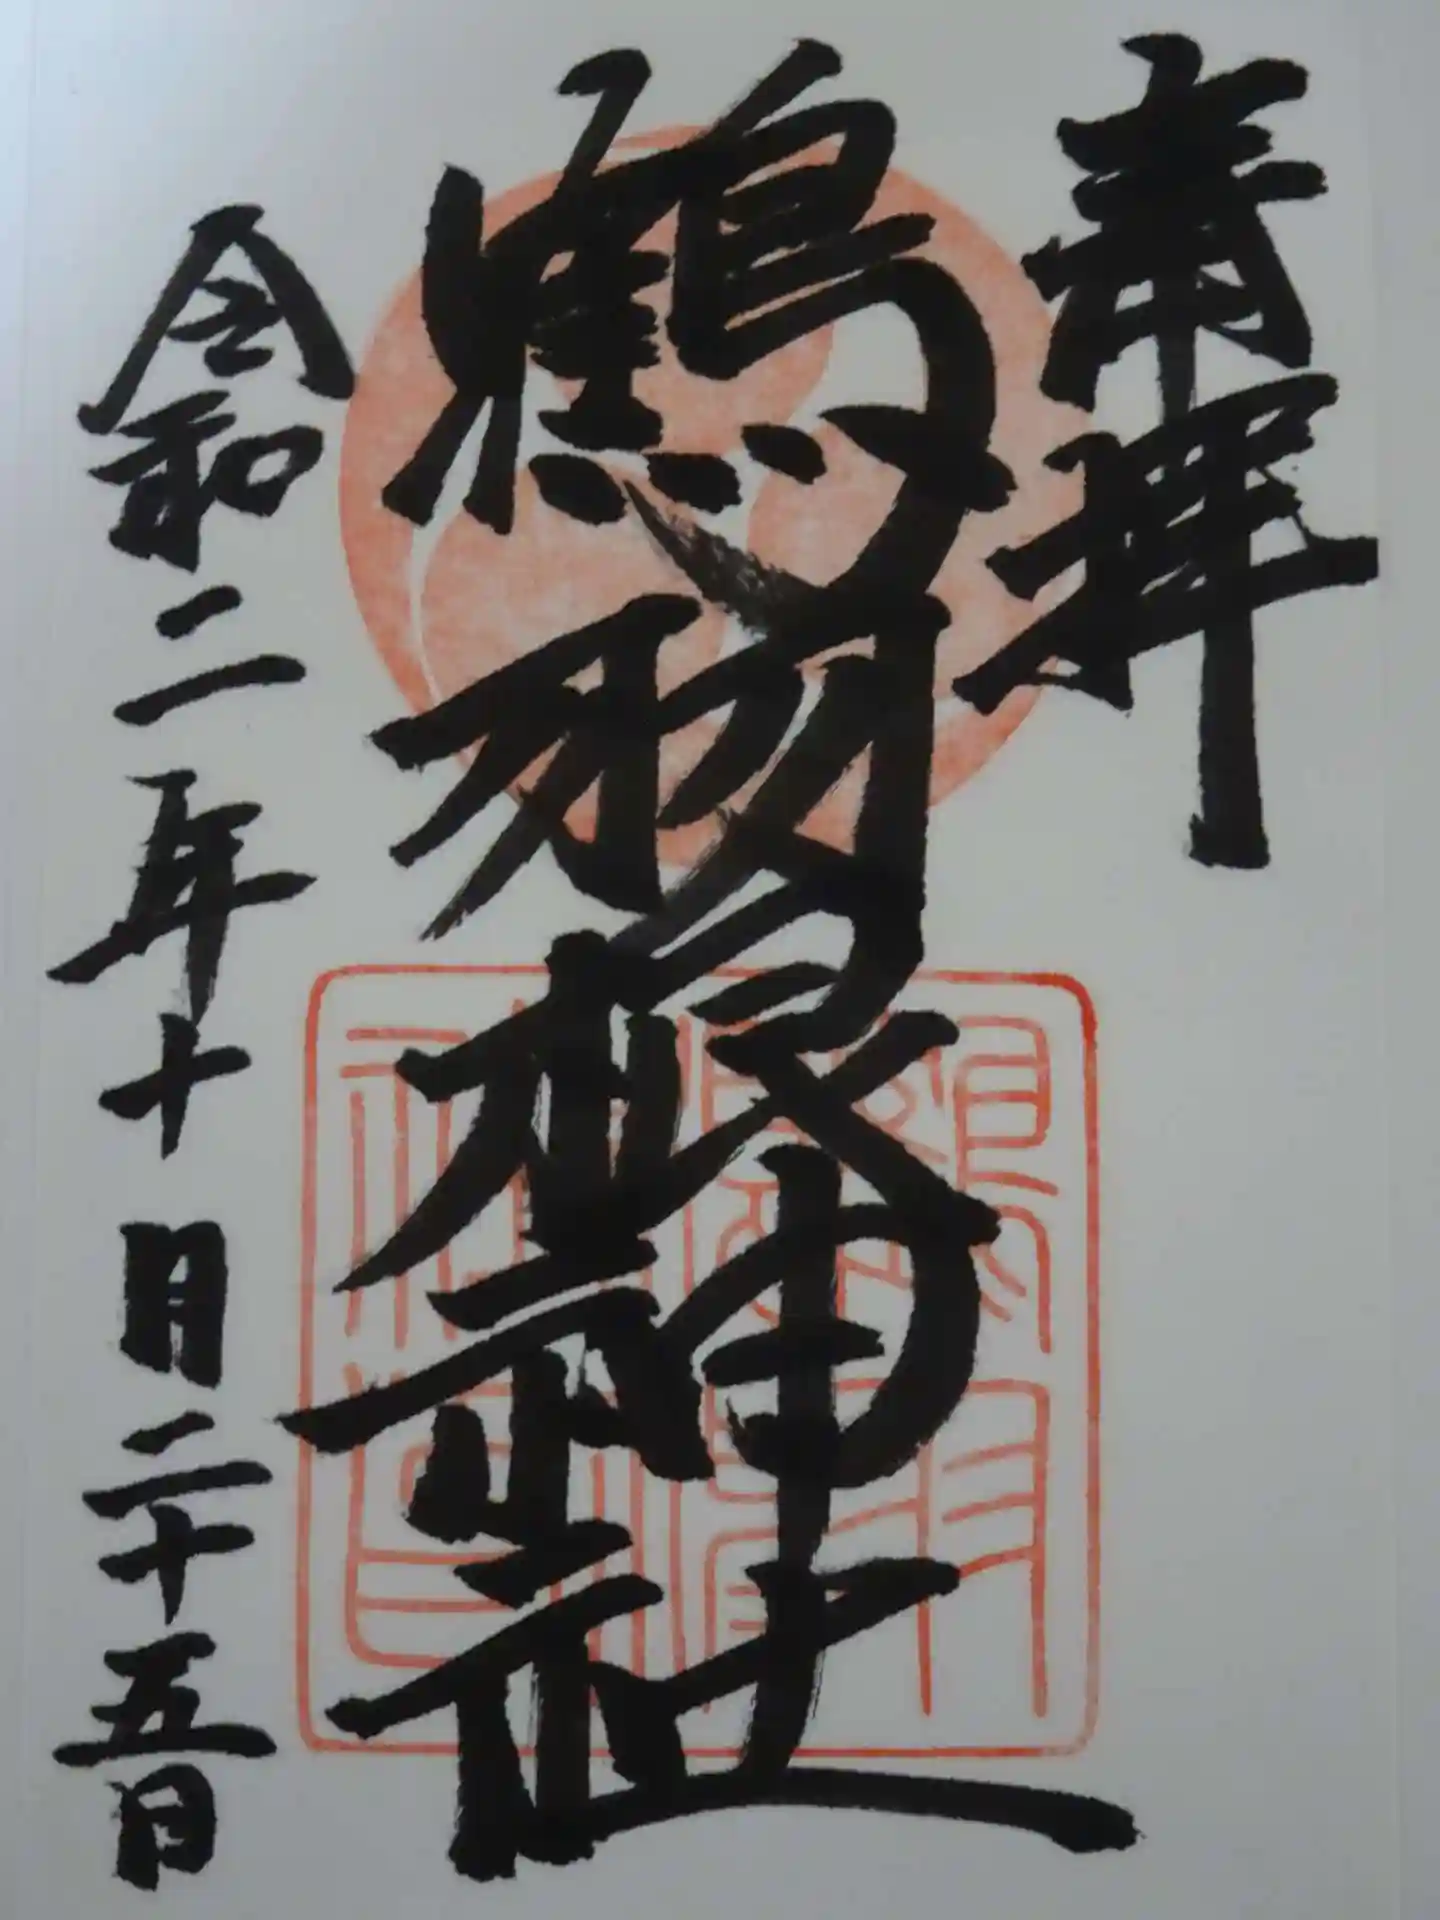 奉拝
鶴羽根神社
令和二年十月二十五日